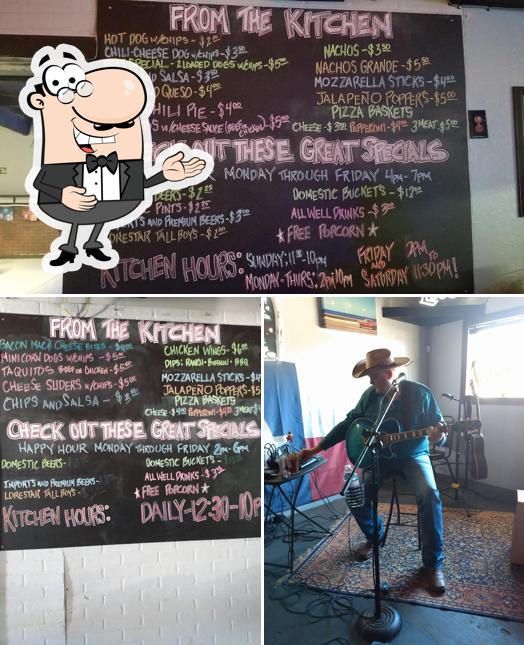 FROM THE KITCHEN
HOT DOG W/CHIPS - $2
CHILI-CHEESE DOG W/CHIPS - $3.50
SPECIAL - 2 LOADED DOGS W/CHIPS - $5
AND SALSA - $3
QUESO - $4
CHILI PIE - $4.00
W/CHEESE SAUCE
NACHOS - $3.50
NACHOS GRANDE - $5.50
MOZZARELLA STICKS - $4
JALAPEÑO POPPERS - $5.00
PIZZA BASKETS
CHEESE - $3 PEPPERONI - $4 3 MEAT $5
OUT THESE GREAT SPECIALS
MONDAY THROUGH FRIDAY 4PM - 7PM
BEERS - $2.25
PINTS - $2
AND PREMIUM BEERS - $3
LONESTAR TALL BOYS - $2
DOMESTIC BUCKETS - $12
ALL WELL DRINKS - $3
★ FREE POPCORN ★
KITCHEN HOURS: SUNDAY: 11:30-10PM
MONDAY-THURS: 2PM-10PM
FRIDAY AND SATURDAY
2PM TO 11:30PM!
FROM THE KITCHEN
BACON MAC & CHEESE BITES
MINI CORN DOGS W/CHIPS - $5
TAQUITOS BEEF OR CHICKEN - $5
CHEESE SLIDERS W/CHIPS - $5
CHIPS AND SALSA - $3
CHICKEN WINGS - $6
DIPS: RANCH • BUFFALO • BBQ
MOZZARELLA STICKS - $4
JALAPEÑO POPPERS - $5
PIZZA BASKETS
CHEESE - $4 PEPPERONI - $4 3 MEAT $
CHECK OUT THESE GREAT SPECIALS
HAPPY HOUR MONDAY THROUGH FRIDAY 2PM - 6PM
DOMESTIC BEERS -
IMPORTS AND PREMIUM BEERS -
LONESTAR TALL BOYS -
DOMESTIC BUCKETS -
ALL WELL DRINKS - $3
★ FREE POPCORN ★
KITCHEN HOURS: DAILY - 12:30-10P